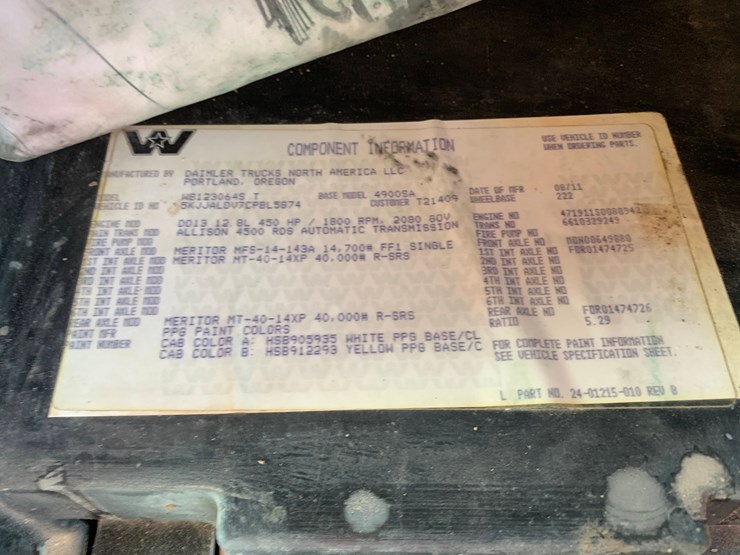 W
COMPONENT INFORMATION
USE VEHICLE ID NUMBER
WHEN ORDERING PARTS.
MANUFACTURED BY DAIMLER TRUCKS NORTH AMERICA LLC
PORTLAND, OREGON
MODEL WB123064S T BASE MODEL 4900SA DATE OF MFR 08/11
VEHICLE ID NO 5KJJALDV7CPBL5874 CUSTOMER T21409 WHEELBASE 222
ENGINE MOD DD13 12.8L 450 HP / 1800 RPM, 2080 GOV ENGINE NO
MAIN TRANS MOD ALLISON 4500 RDS AUTOMATIC TRANSMISSION TRANS NO 6610339249
FIRE PUMP MOD FIRE PUMP NO
FRONT AXLE MOD MERITOR MFS-14-143A 14,700# FF1 SINGLE FRONT AXLE NO
1ST INT AXLE MOD MERITOR MT-40-14XP 40,000# R-SRS 1ST INT AXLE NO FDR01474725
2ND INT AXLE MOD 2ND INT AXLE NO
3RD INT AXLE MOD 3RD INT AXLE NO
4TH INT AXLE MOD 4TH INT AXLE NO
5TH INT AXLE MOD 5TH INT AXLE NO
6TH INT AXLE MOD 6TH INT AXLE NO
REAR AXLE MOD MERITOR MT-40-14XP 40,000# R-SRS REAR AXLE NO FDR01474726
PAINT MFR PPG PAINT COLORS RATIO 5.29
PAINT NUMBER CAB COLOR A: HSB905935 WHITE PPG BASE/CL
CAB COLOR B: HSB912293 YELLOW PPG BASE/C
FOR COMPLETE PAINT INFORMATION
SEE VEHICLE SPECIFICATION SHEET.
L PART NO. 24-01215-010 REV B